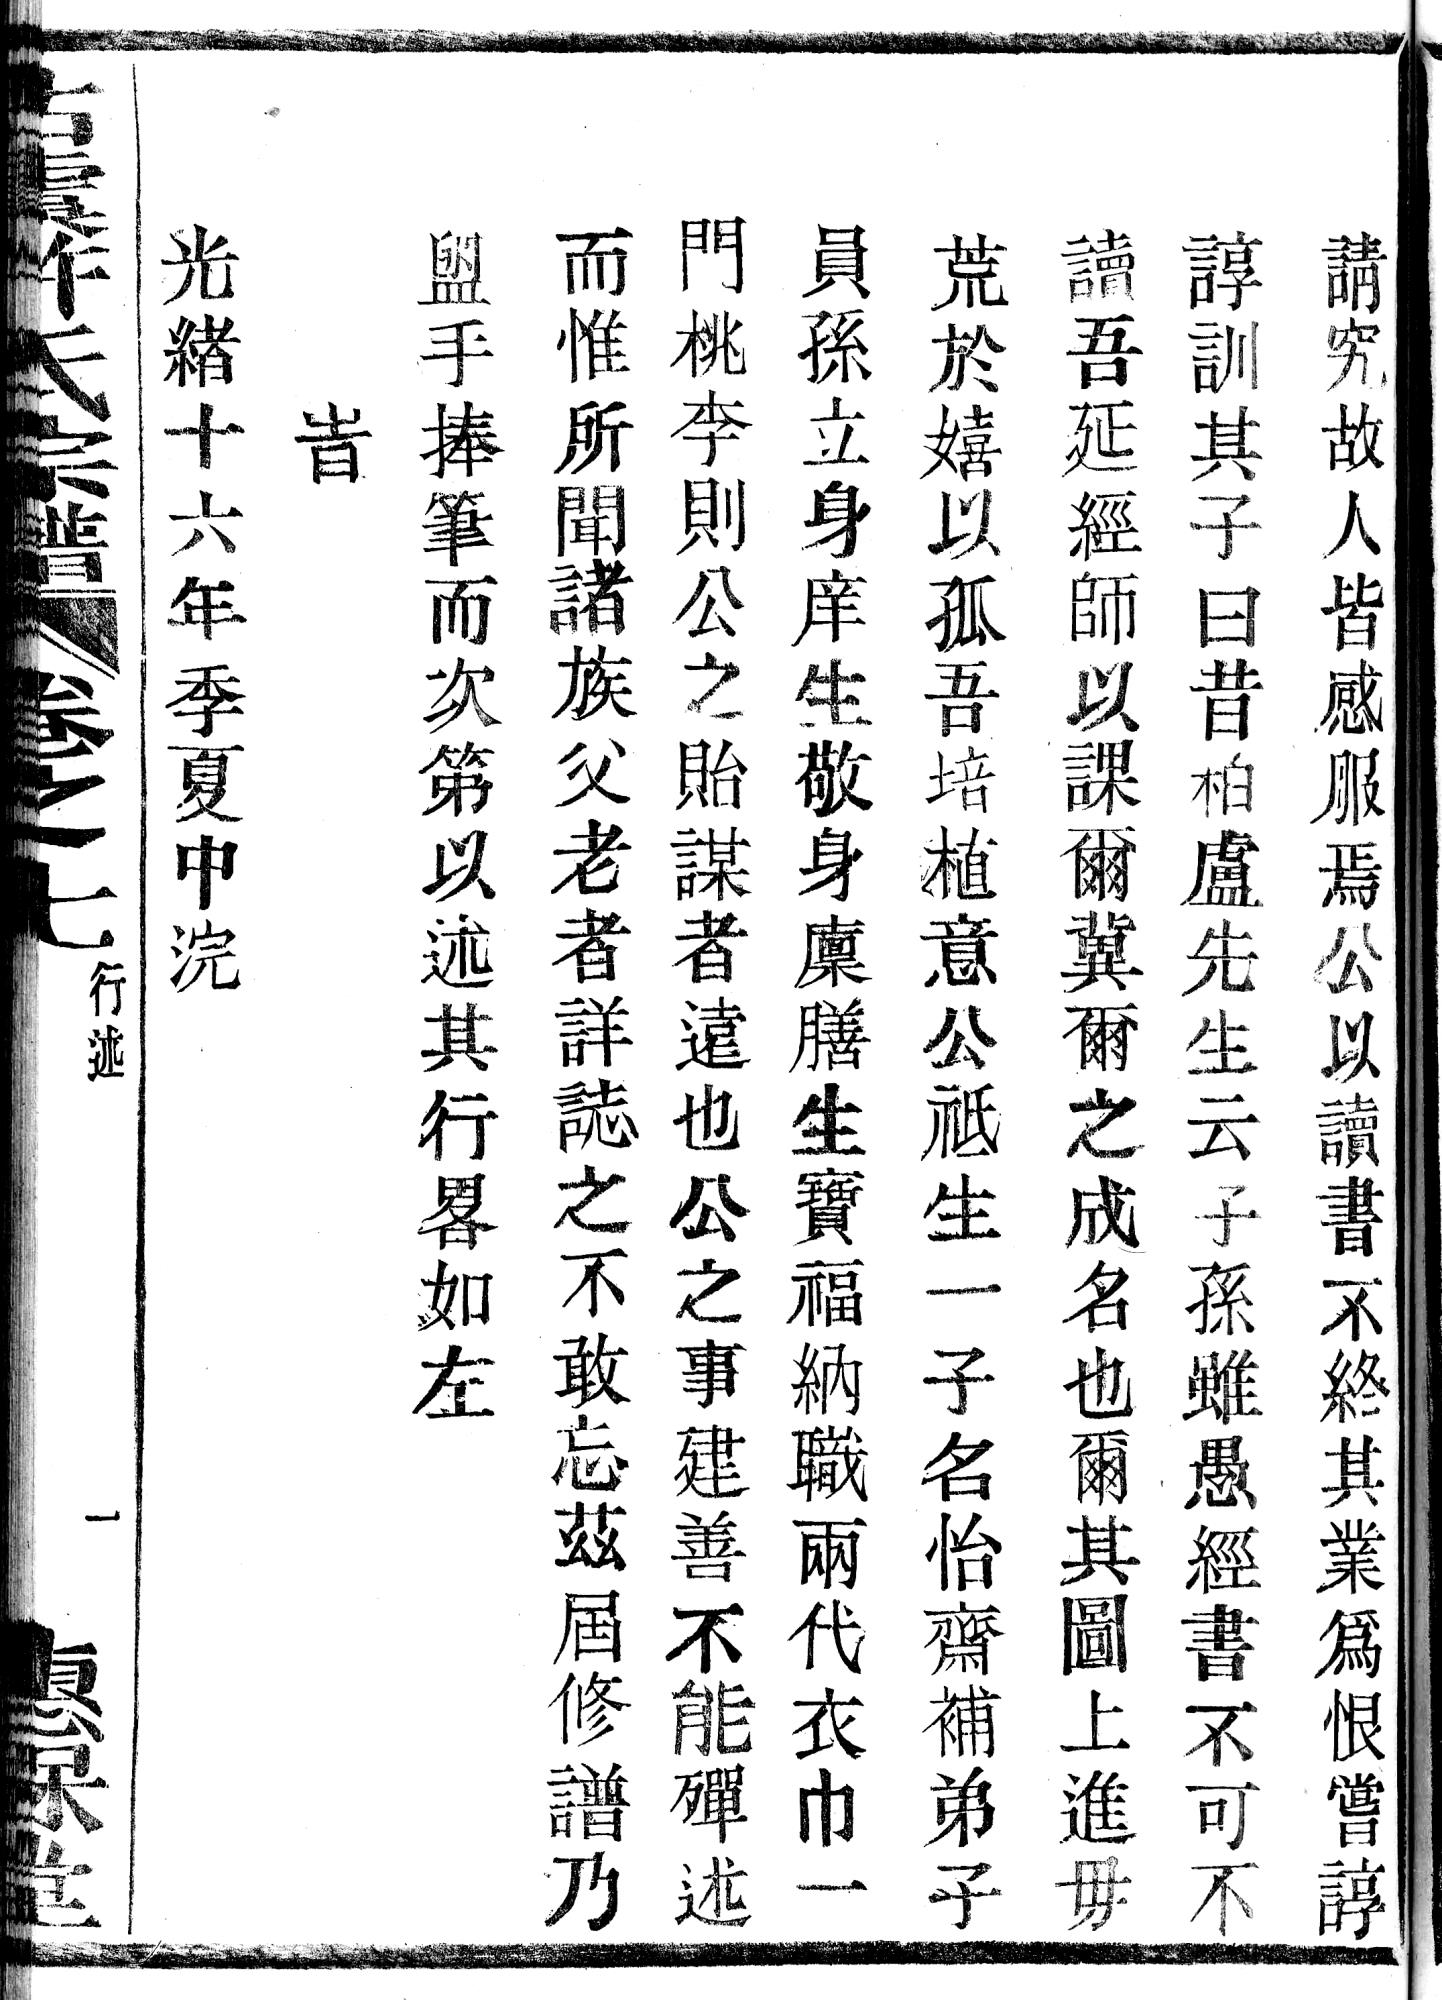 請究故人皆感服焉公以讀書不終其業爲恨嘗諄
諄訓其子曰昔柏盧先生云子孫雖愚經書不可不
讀吾延經師以課爾冀爾之成名也爾其圖上進毋
荒於嬉以孤吾培植意公祗生一子名怡齋補弟子
員孫立身庠生敬身廩膳生寶福納職兩代衣巾一
門桃李則公之貽謀者遠也公之事建善不能殫述
而惟所聞諸族父老者詳誌之不敢忘茲屆修譜乃
盥手捧筆而次第以述其行畧如左
旹
光緒十六年季夏中浣
氏宗譜 卷之七 行述 一 堂